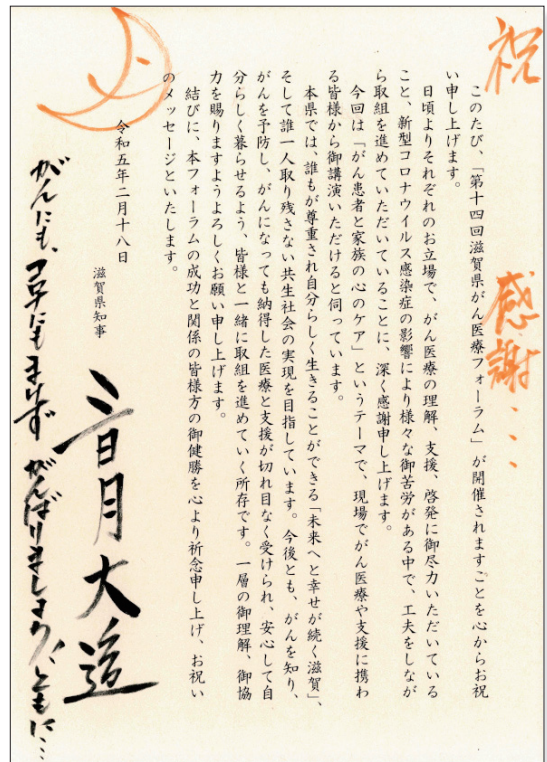 祝
感謝・・・
このたび、「第十四回滋賀県がん医療フォーラム」が開催されますことを心からお祝
い申し上げます。
日頃よりそれぞれのお立場で、がん医療の理解、支援、啓発に御尽力いただいている
こと、新型コロナウイルス感染症の影響により様々な御苦労がある中で、工夫をしなが
ら取組を進めていただいていることに、深く感謝申し上げます。
今回は「がん患者と家族の心のケア」というテーマで、現場でがん医療や支援に携わ
る皆様から御講演いただけると伺っています。
本県では、誰もが尊重され自分らしく生きることができる「未来へと幸せが続く滋賀」、
そして誰一人取り残さない共生社会の実現を目指しています。今後とも、がんを知り、
がんを予防し、がんになっても納得した医療と支援が切れ目なく受けられ、安心して自
分らしく暮らせるよう、皆様と一緒に取組を進めていく所存です。一層の御理解、御協
力を賜りますようよろしくお願い申し上げます。
結びに、本フォーラムの成功と関係の皆様方の御健勝を心より祈念申し上げ、お祝い
のメッセージといたします。
令和五年二月十八日
滋賀県知事
三日月大造
がんにも、コロナにもまけず がんばりましょう、ともに…